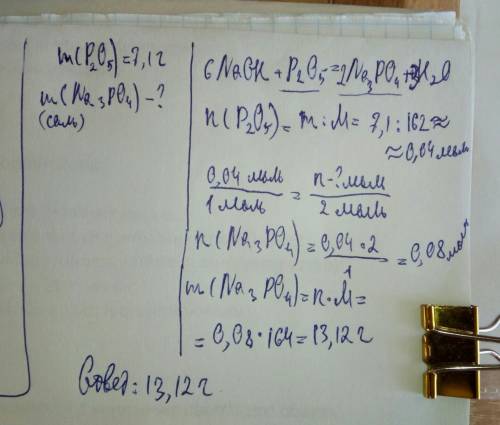 m(P₂O₅)=7,1г
m(Na₃PO₄)-?
(соль)
6NaOH + P₂O₅ = 2Na₃PO₄ + 3H₂O
n(P₂O₅) = m : M = 7,1 : 162 ≈
≈ 0,04 моль
0,04 моль / 1 моль = n-? моль / 2 моль
n(Na₃PO₄) = 0,04 · 2 / 1 = 0,08 моль
m(Na₃PO₄) = n · M =
= 0,08 · 164 = 13,12 г
Ответ: 13,12 г